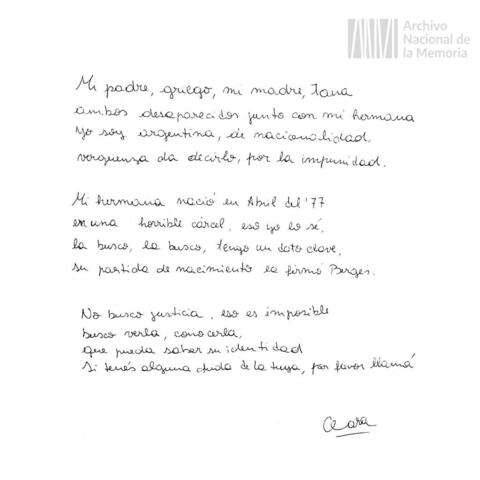 Archivo
Nacional de
la Memoria
Mi padre, griego, mi madre, Tana
ambos desaparecidos junto con mi hermana
Yo soy argentina, de nacionalidad,
verguenza da decirlo, por la impunidad.
Mi hermana nació en Abril del '77
en una horrible cárcel, eso yo lo sé,
la busco, la busco, tengo un dato clave,
su partida de nacimiento la firmó Bergés.
No busco justicia, eso es imposible
busco verla, conocerla,
que pueda saber su identidad
Si tenés alguna duda de la tuya, por favor llamá
Clara